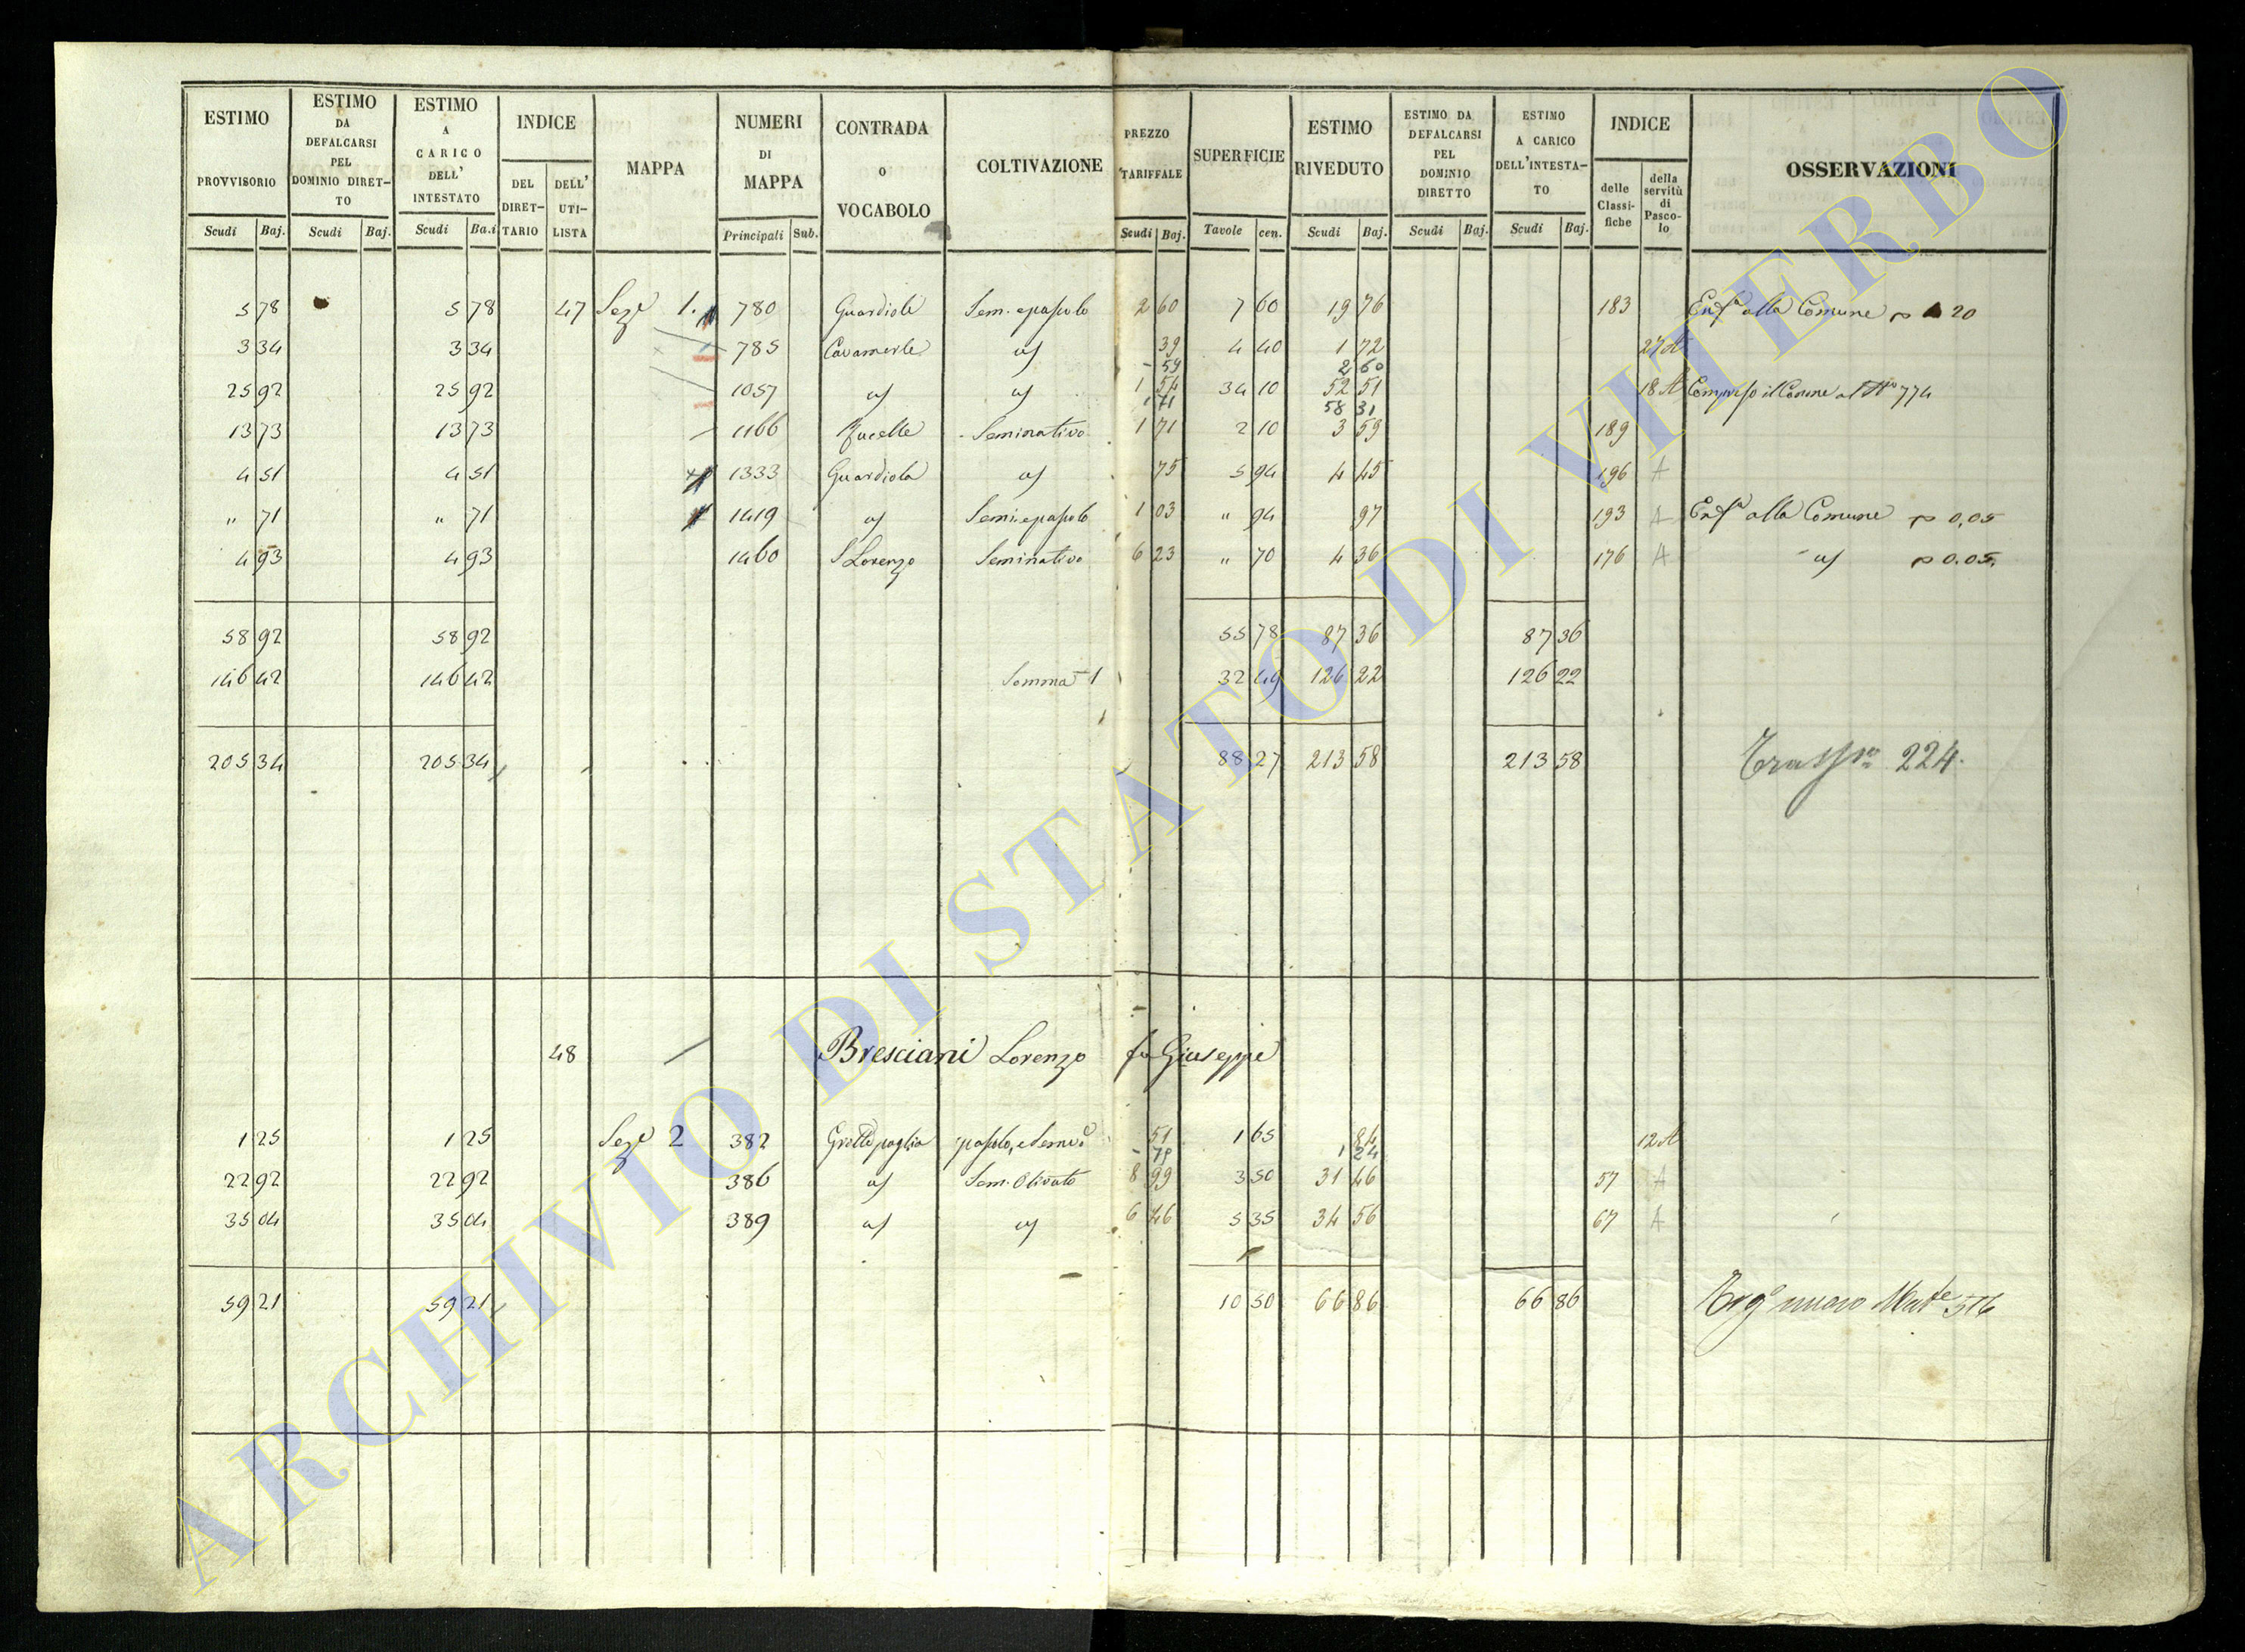 ESTIMO PROVVISORIO Scudi Baj.
ESTIMO DA DEFALCARSI PEL DOMINIO DIRET-TO Scudi Baj.
ESTIMO A CARICO DELL' INTESTATO Scudi Ba.i
INDICE DEL DIRET-TARIO DELL' UTI-LISTA
MAPPA
NUMERI DI MAPPA Principali Sub.
CONTRADA O VOCABOLO
COLTIVAZIONE
PREZZO TARIFFALE Scudi Baj.
SUPERFICIE Tavole cen.
ESTIMO RIVEDUTO Scudi Baj.
ESTIMO DA DEFALCARSI PEL DOMINIO DIRETTO Scudi Baj.
ESTIMO A CARICO DELL'INTESTA-TO Scudi Baj.
INDICE delle Classi-fiche della servitù di Pasco-lo
OSSERVAZIONI
5 78 5 78 47 Sez.e 1. 780 Guardiole Sem. e pascolo 2 60 7 60 19 76 183 Enf.a alla Comune 20
3 34 3 34 785 Cavamerle 39 4 40 1 72 27 A
59 2 60
25 92 25 92 1057 1 54 34 10 52 51 18 A Compreso il Canone al N.o 774
1 71 58 31
13 73 13 73 1166 Seminativo 1 71 2 10 3 59 189
4 51 4 51 1333 Guardiola 75 5 94 4 45 196 A
" 71 " 71 1419 Sem. e pascolo 1 03 " 94 97 193 A Enf.a alla Comune 0,05
4 93 4 93 1460 S Lorenzo Seminativo 6 23 " 70 4 36 176 A 0.05.
58 92 58 92 55 78 87 36 87 36
146 42 146 42 Somma 1 32 49 126 22 126 22
205 34 205 34 88 27 213 58 213 58 224.
48 Bresciani Lorenzo fu Giuseppe
1 25 1 25 Sez.e 2 382 Grotte paglia pascolo, e Sem.o 51 1 65 84 12 A
1 24
22 92 22 92 386 Sem. Olivato 8 99 3 50 31 46 57 A
35 04 35 04 389 6 46 5 35 34 56 67 A
59 21 59 21 10 50 66 86 66 86 nuovo 516
ARCHIVIO DI STATO DI VITERBO